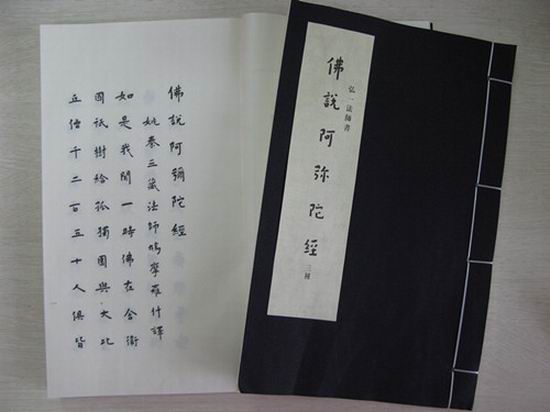 弘一法師書
佛說阿弥陀經 三種
佛說阿彌陀經
姚秦三藏法師鳩摩羅什譯
如是我聞一時佛在舍衛
國祇樹給孤獨園與大比
丘僧千二百五十人俱皆